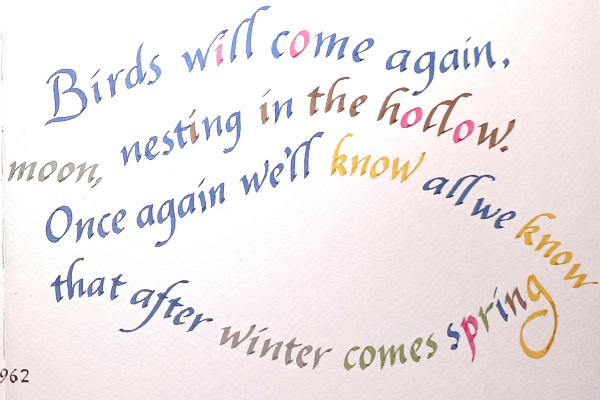 Birds will come again,
nesting in the hollow.
moon,
Once again we'll know all we know
that after winter comes spring
962